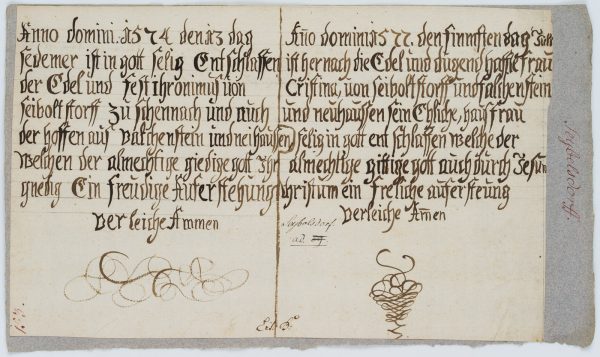 Anno domini. 1574 den 13 dag
sedemer ist in gott selig Entschlaffen
der Edel und fest ihronimus von
seiboltstorff zu schennach und auch
der hoffen auf valchenstein und neihaussen
welchen der almechtige giedige gott Ihr
gnedig Ein freudige Auferstehung
verleiche Ammen
Año domini 1577. den finnften dag
ist her nach die Edel und dugend haffte frau
Cristina, von seiboltstorff und falchenstein
und neuhaussen sein Ehliche, haus frau
selig in gott ent schlaffen welche der
almechtige gittige gott auch durch Jesun
christum ein freliche aufersteung
verleiche Amen
Seyboldsdorf.
ad.
E. b. B.
Seyboldsdorff.